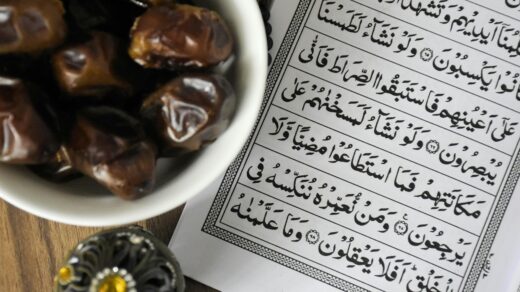 اَيْدِيْهِمْ وَتَشْهَدُ
يَكْسِبُوْنَ ۝٦٥ وَلَوْ نَشَآءُ لَطَمَسْنَا
عَلٰٓى اَعْيُنِهِمْ فَاسْتَبَقُوا الصِّرَاطَ فَاَنّٰى
يُبْصِرُوْنَ ۝٦٦ وَلَوْ نَشَآءُ لَمَسَخْنٰهُمْ عَلٰى
مَكَانَتِهِمْ فَمَا اسْتَطَاعُوْا مُضِيًّا وَّلَا
يَرْجِعُوْنَ ۝٦٧ وَمَنْ نُّعَمِّرْهُ نُنَكِّسْهُ فِى
الْخَلْقِ ؕ اَفَلَا يَعْقِلُوْنَ ۝٦٨ وَمَا عَلَّمْنٰهُ